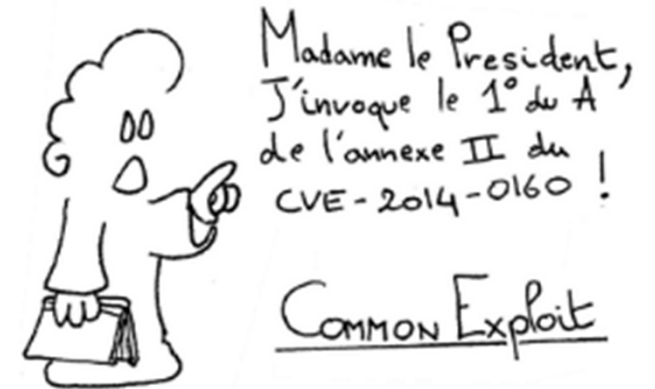 Madame le President,
J'invoque le 1° du A
de l'annexe II du
CVE-2014-0160 !
COMMON Exploit